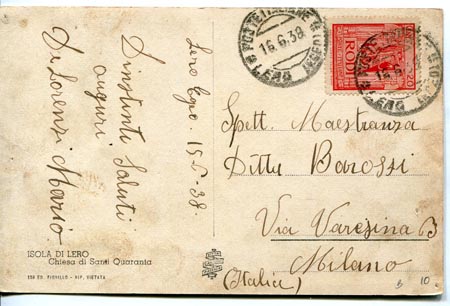 Lero Egeo 15-6-38
Distinti Saluti
auguri
De Lorenzi Mario
ISOLA DI LERO
Chiesa di Santi Quaranta
POSTE ITALIANE
16.6.38
LERO
RODI
20
16.6
LERO
Spett. Maestranza
Ditta Barossi
Via Varesina B
Milano
(Italia)
B 10